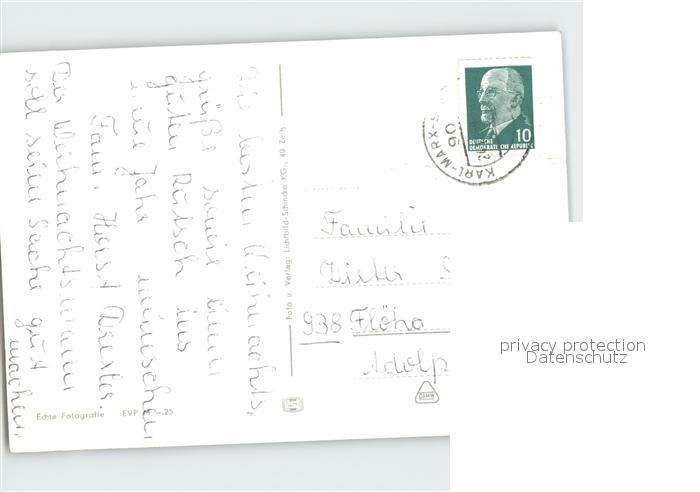 Die besten Weihnachts,
grüße sowie einen
guten Rutsch ins
neue Jahr wünschen
Fam. Horst Drexler.
Der Weihnachtsmann
soll seine Sache gut
machen.
Foto u. Verlag: Lichtbild-Schincke KG., 49 Zeitz
10
DEUTSCHE
DEMOKRATISCHE REPUBLIK
KARL-MARX-S
90
Familie
Dieter
938 Flöha
Adolp
DAMW
Echte Fotografie EVP -.25
privacy protection
Datenschutz